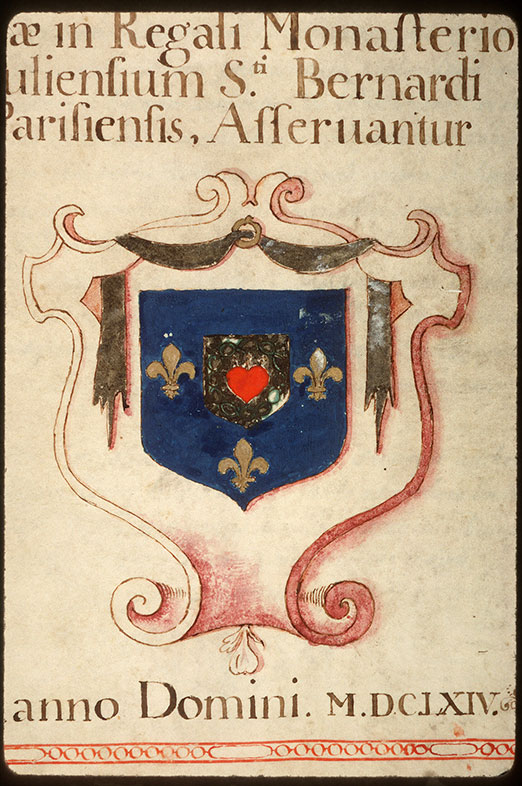 æ in Regali Monaſterio
ulienſium S.ti Bernardi
Pariſienſis, Aſſeruantur
anno Domini. M.DCLXIV.